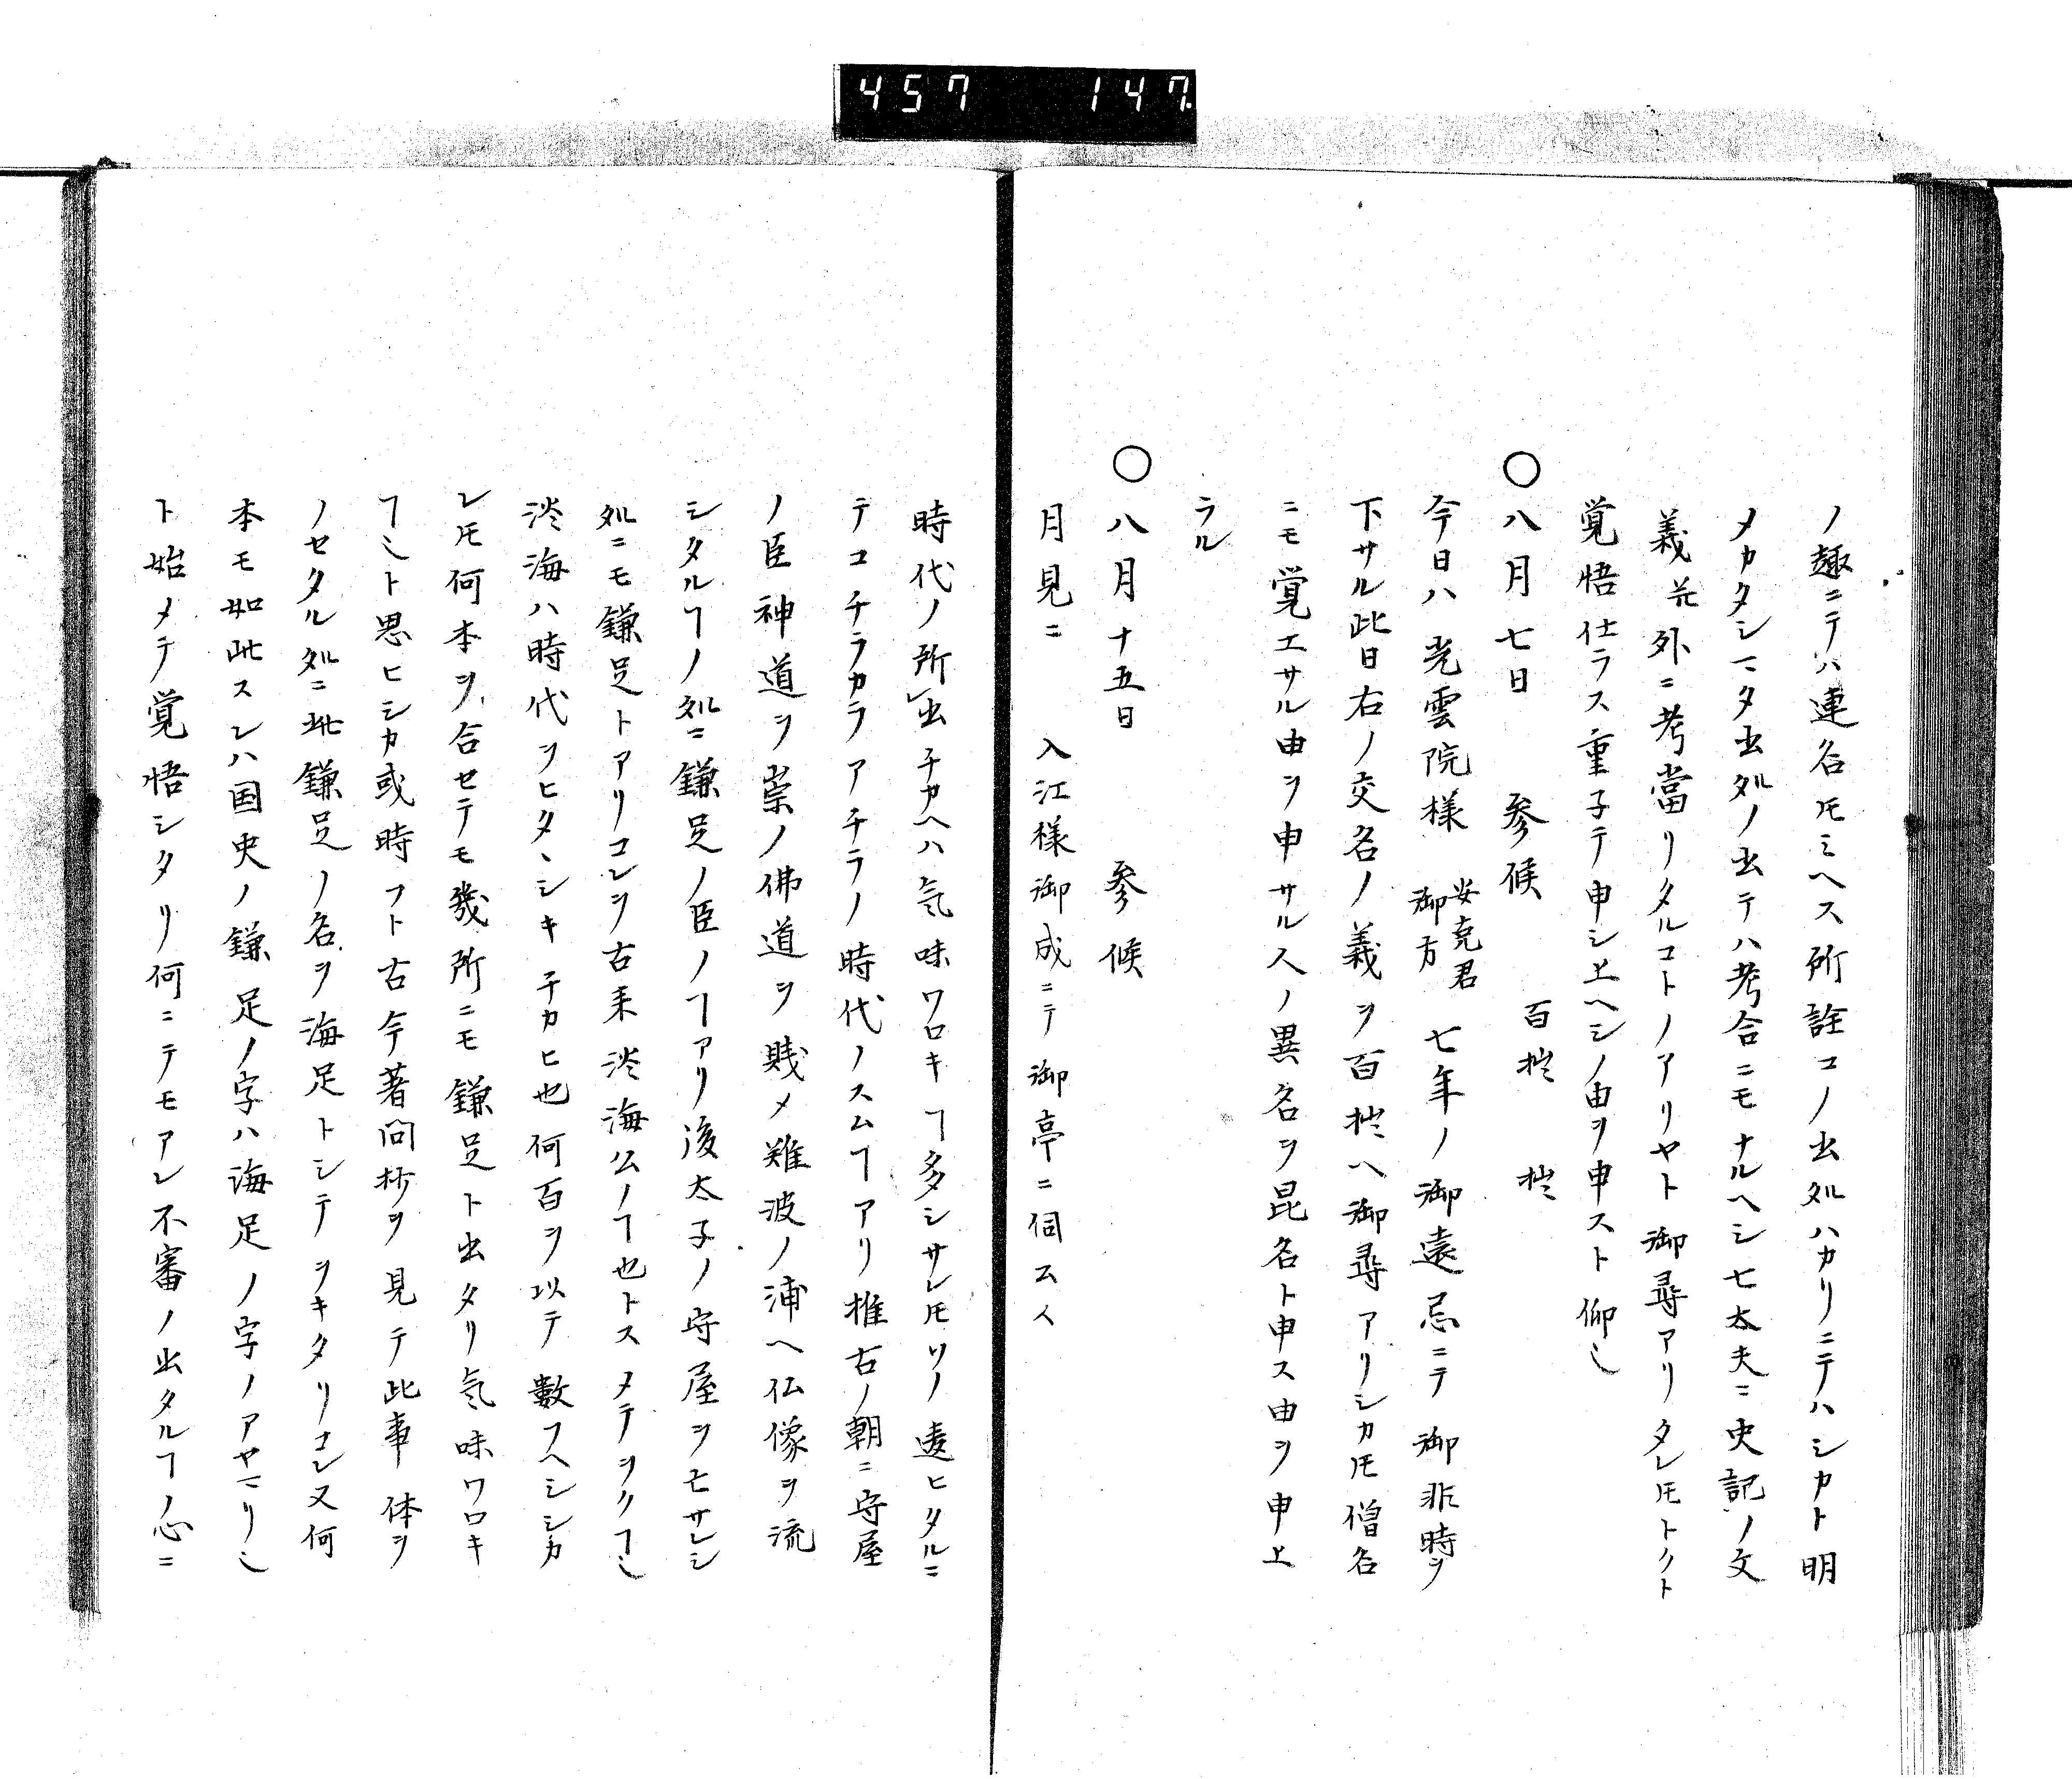 457 147.
ノ趣ニテハ連名𪜈ミヘス所詮コノ出処ハカリニテハシカト明
メカタシマタ出処ノ出テハ考合ニモナルヘシ七太夫ニ史記ノ文
義并外ニ考當リタルコトノアリヤト御尋アリタレ𪜈トクト
覚悟仕ラス重子テ申シ上ヘシノ由ヲ申スト仰也
○八月七日 参候 百拙 拙
今日ハ光雲院様 安克君御方 七年ノ御遠忌ニテ御非時ヲ
下サル此日右ノ交名ノ義ヲ百拙ヘ御尋アリシカ𪜈僧名
ニモ覚エサル由ヲ申サル人ノ異名ヲ昆名ト申ス由ヲ申上
ラル
○八月十五日 参候
月見ニ 入江様御成ニテ御亭ニ伺ム人
時代ノ所出チカヘハ気味ワロキヿ多シサレ𪜈ソノ違ヒタルニ
テコチラカラアチラノ時代ノスムヿアリ推古ノ朝ニ守屋
ノ臣神道ヲ崇ノ佛道ヲ賎メ難波ノ浦ヘ仏像ヲ流
シタルヿノ処ニ鎌足ノ臣ノヿアリ後太子ノ守屋ヲモサレシ
処ニモ鎌足トアリコレヲ古来淡海公ノヿ也トスメテヲクヿ也
淡海ハ時代ヲヒタヽシキチカヒ也何百ヲ以テ数フヘシシカ
レ𪜈何本ヲ合セテモ幾所ニモ鎌足ト出タリ気味ワロキ
ヿ也ト思ヒシカ或時フト古今著聞抄ヲ見テ此事体ヲ
ノセタル処ニ此鎌足ノ名ヲ海足トシテヲキタリコレ又何
本モ如此スレハ国史ノ鎌足ノ字ハ海足ノ字ノアヤマリ也
ト始メテ覚悟シタリ何ニテモアレ不審ノ出タルヿノ心ニ